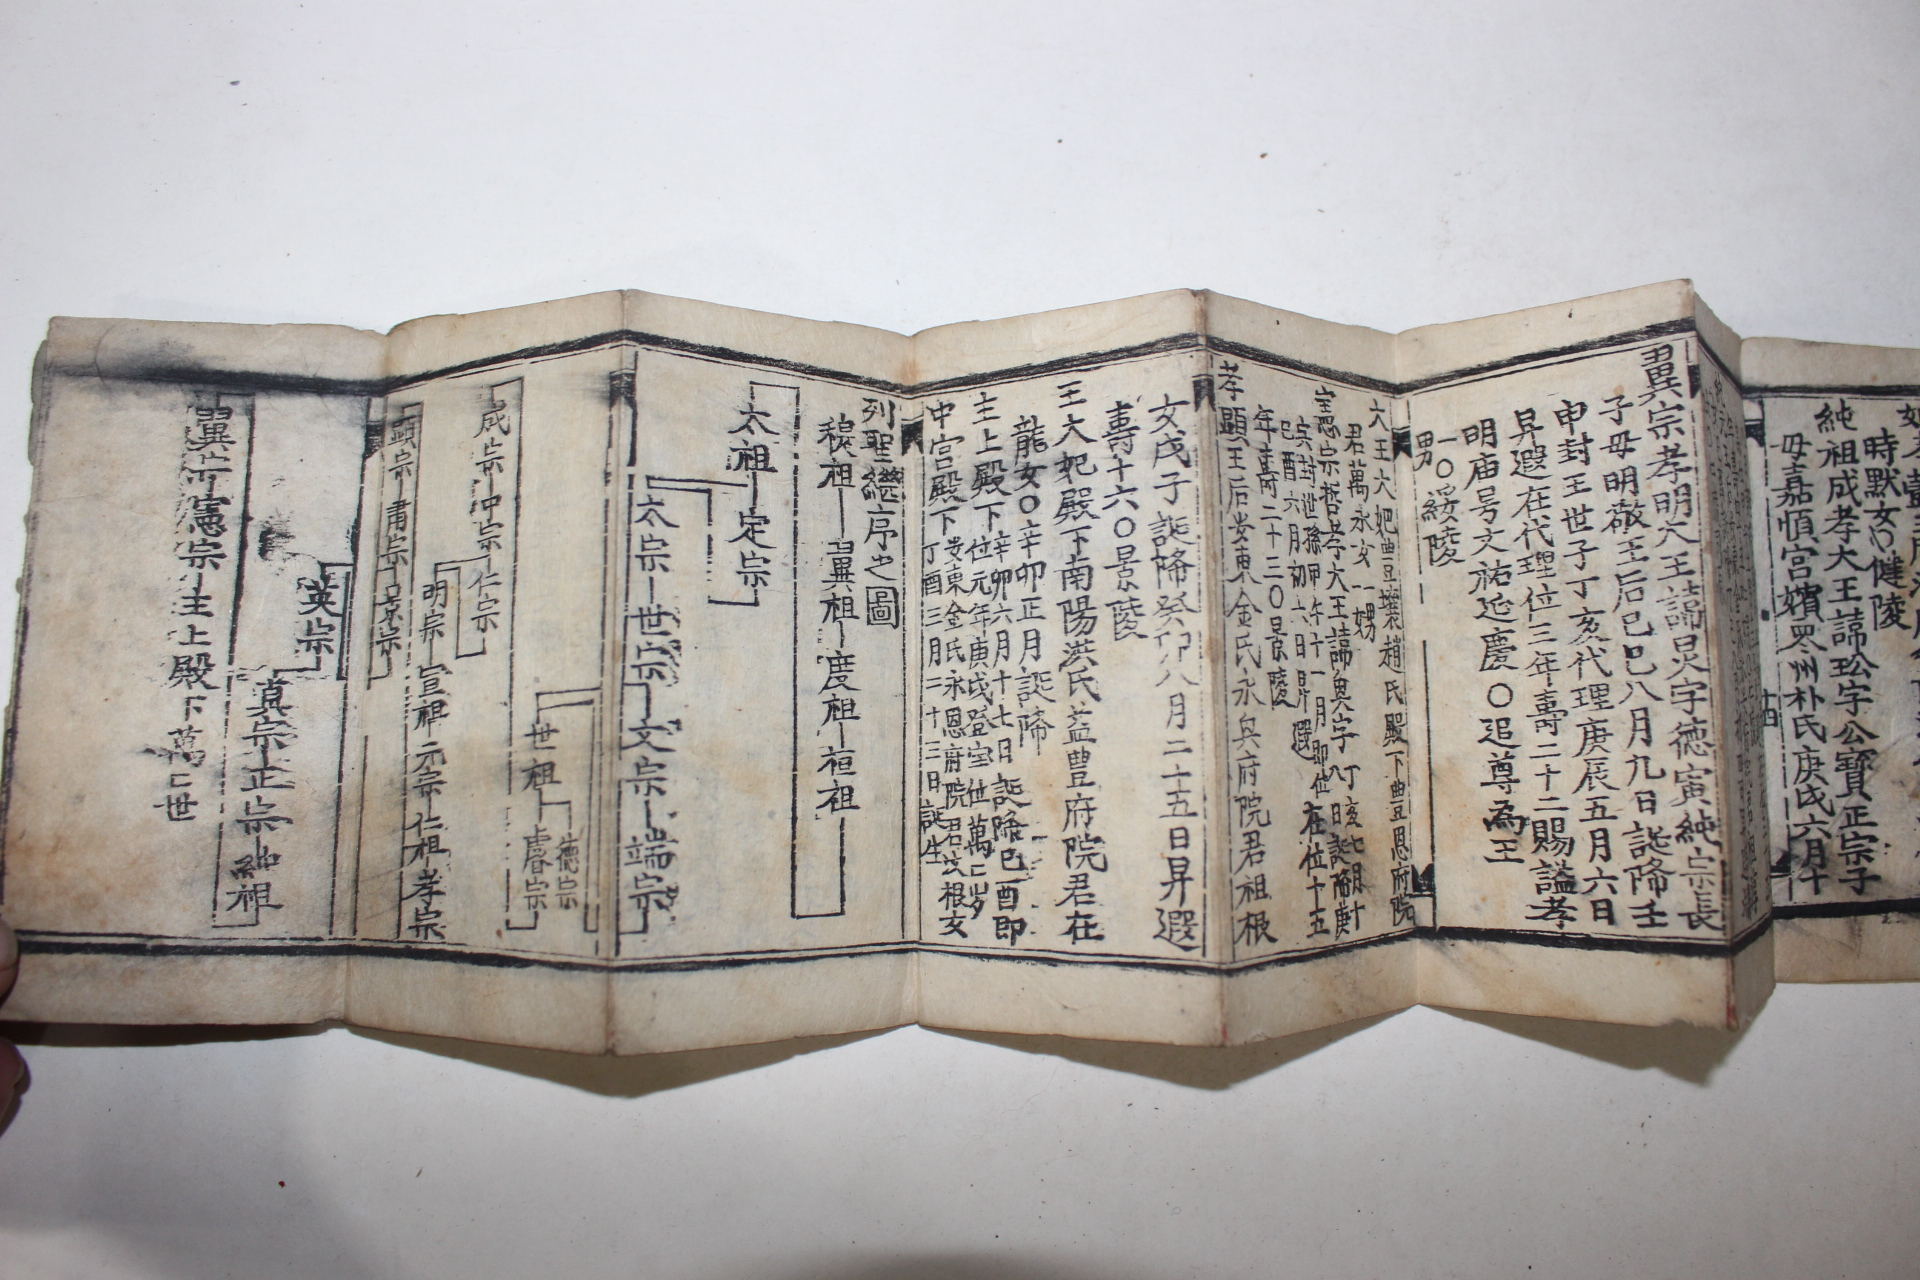 時默女〇健陵
純祖成孝大王諱玜字公寶正宗子
母嘉順宮嬪朴氏庚戌六月十
翼宗孝明大王諱旲字德寅純宗長
子母明敬王后己巳八月九日誕降壬
申封王世子丁亥代理庚辰五月六日
昇遐在代理位三年壽二十二賜謚孝
明庙号文祐延慶〇追尊為王
一〇綏陵
男
大王大妃豊壤趙氏殿下豊恩府院
君萬永女一男
憲宗哲孝大王諱奐字丁亥七月十
八日誕降庚
宗封世孫甲午十一月即位在位十五
己酉六月初六日昇遐
年壽二十三〇景陵
孝顯王后安東金氏永興府院君祖根
女戊子誕降癸卯八月二十五日昇遐
壽十六〇景陵
王大妃殿下南陽洪氏益豊府院君在
龍女〇辛卯正月誕降
主上殿下辛卯六月十七日誕降己酉即
位元年庚戌登宝位萬〻岁
中宮殿下安東金氏永恩府院君汶根女
丁酉三月二十三日誕生
列聖繼序之圖
穆祖 翼祖 度祖 桓祖
太祖 定宗
太宗 世宗 文宗 端宗
世祖 德宗
睿宗
成宗 中宗 仁宗
明宗 宣祖 元宗 仁祖 孝宗
顯宗 肅宗 景宗
英宗
真宗 正宗 純祖
翼宗 憲宗 主上殿下萬〻世